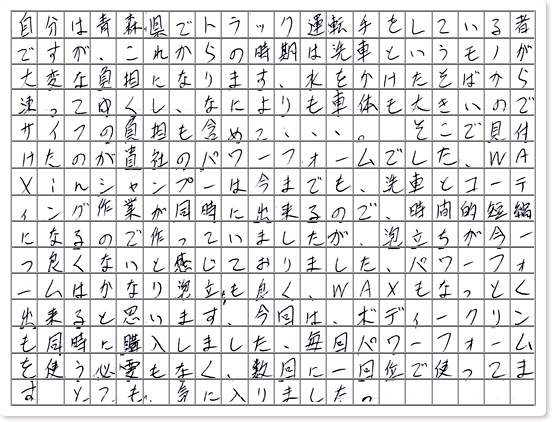 自分は青森県でトラック運転手をしている者
ですが、これからの時期は洗車というモノが
大変な負担になります、水をかけたそばから
凍ってゆくし、なによりも車体も大きいので
サイフの負担も含めて・・・。　そこで見付
けたのが貴社のパワーフォームでした、WA
Xinシャンプーは今までも、洗車とコーテ
ィング作業が同時に出来るので、時間的短縮
になるので作っていましたが、泡立ちが今一
つ良くないと感じておりました、パワーフォ
ームはかなり泡立も良く、WAXもなっとく
出来ると思います、今回は、ボディークリン
も同時に購入しました、毎回パワーフォーム
を使う必要もなく、数回に一回位で使ってま
す　とっても、気に入りました。